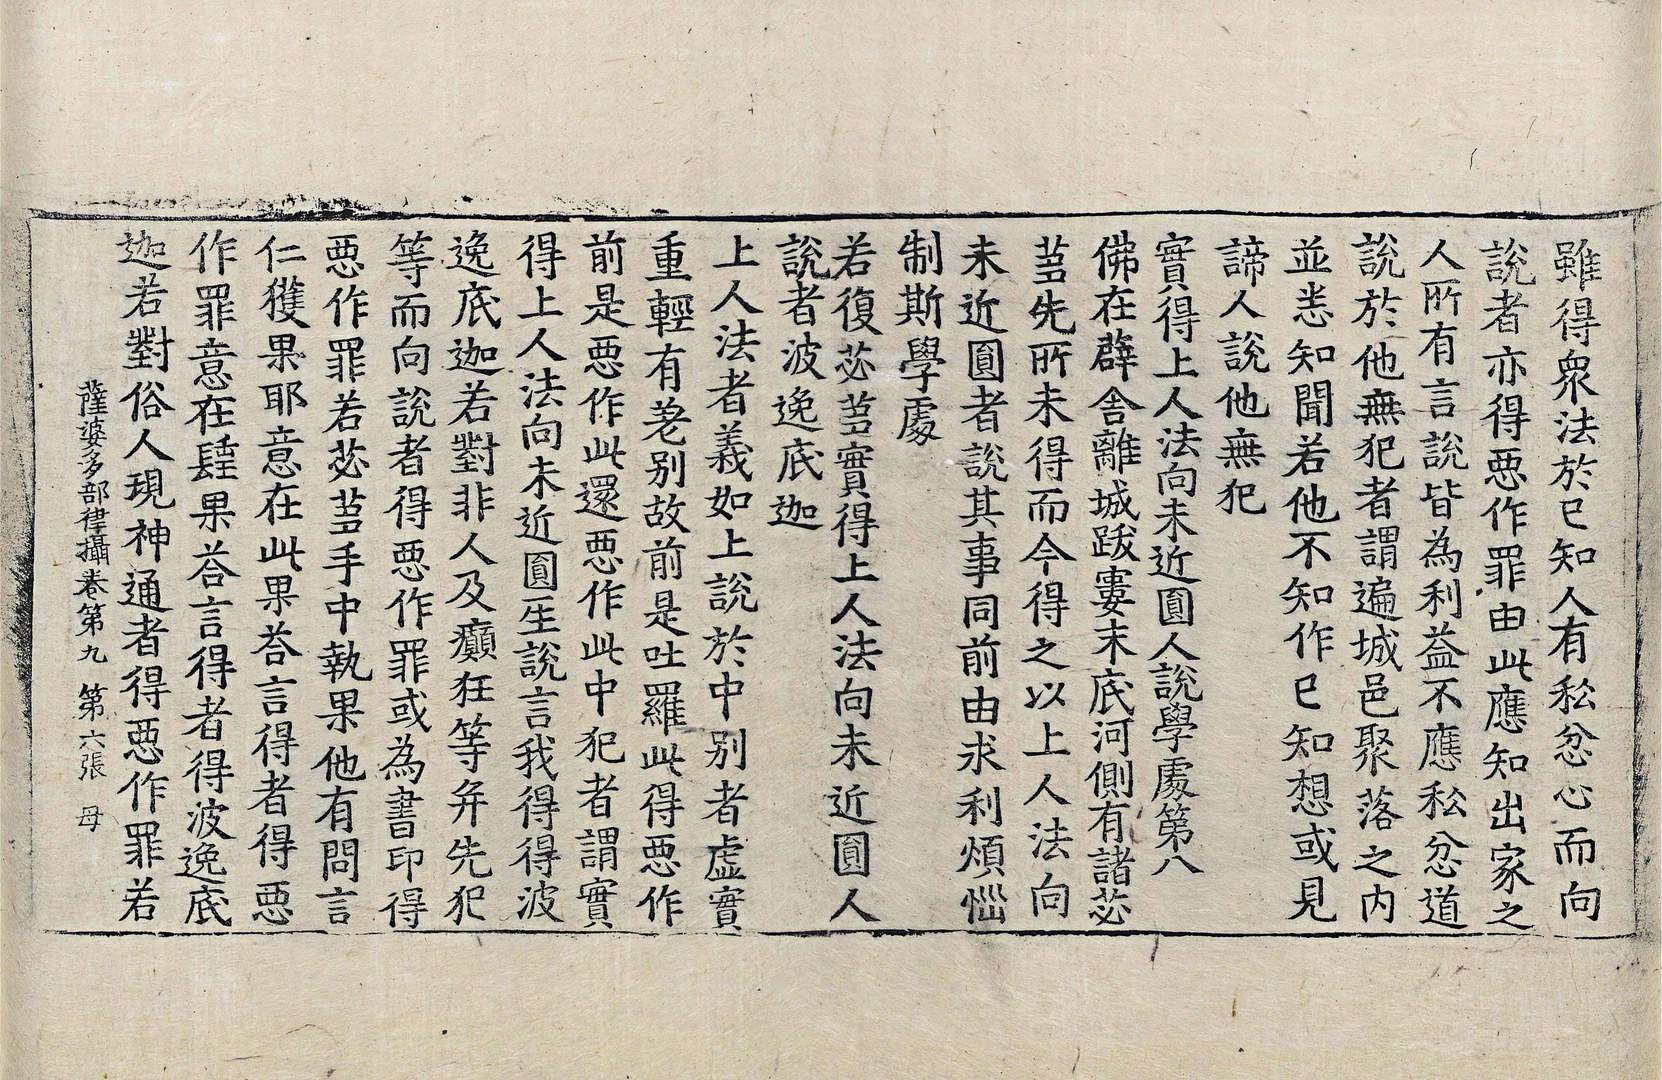 雖得衆法於已知人有私忿心而向
說者亦得惡作罪由此應知出家之
人所有言說皆為利益不應私忿道
說於他無犯者謂遍城邑聚落之内
並恙知聞若他不知作已知想或見
諦人說他無犯
實得上人法向未近圓人說學處第八
佛在薜舍離城跋窶末底河側有諸苾
蒭先所未得而今得之以上人法向
未近圓者說其事同前由求利煩惱
制斯學處
若復苾蒭實得上人法向未近圓人
說者波逸底迦
上人法者義如上說於中別者虛實
重輕有差別故前是吐羅此得惡作
前是惡作此還惡作此中犯者謂實
得上人法向未近圓生說言我得得波
逸底迦若對非人及癲狂等并先犯
等而向說者得惡作罪或為書印得
惡作罪若苾蒭手中執果他有問言
仁獲果耶意在此果荅言得者得惡
作罪意在䟆果荅言得者得波逸底
迦若對俗人現神通者得惡作罪若
薩婆多部律攝卷第九 第六張 母